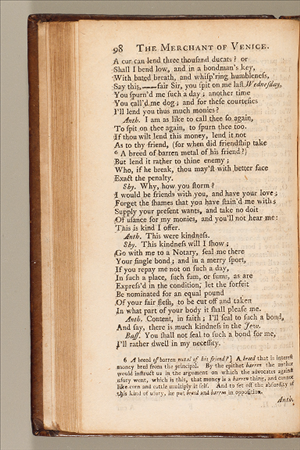 98 THE MERCHANT OF VENICE.
A cur can lend three thousand ducats? or
Shall I bend low, and in a bondman's key,
With bated breath, and whisp'ring humbleness,
Say this,——fair Sir, you spit on me last Wednesday,
You spurn'd me such a day; another time
You call'd me dog; and for these courtesies
I'll lend you thus much monies?
Anth. I am as like to call thee so again,
To spit on thee again, to spurn thee too.
If thou wilt lend this money, lend it not
As to thy friend, (for when did friendship take
6 A breed of barren metal of his friend?)
But lend it rather to thine enemy;
Who, if he break, thou may'st with better face
Exact the penalty.
Shy. Why, how you storm?
I would be friends with you, and have your love;
Forget the shames that you have stain'd me with;
Supply your present wants, and take no doit
Of usance for my monies, and you'll not hear me:
This is kind I offer.
Anth. This were kindness.
Shy. This kindness will I show;
Go with me to a Notary, seal me there
Your single bond; and in a merry sport,
If you repay me not on such a day,
In such a place, such sum, or sums, as are
Express'd in the condition; let the forfeit
Be nominated for an equal pound
Of your fair flesh, to be cut off and taken
In what part of your body it shall please me.
Anth. Content, in faith; I'll seal to such a bond,
And say, there is much kindness in the Jew.
Bass. You shall not seal to such a bond for me,
I'll rather dwell in my necessity.
6 A breed of barren metal of his friend?] A breed that is interest
money bred from the principal. By the epithet barren the author
would instruct us in the argument on which the advocates against
usury went, which is this, that money is a barren thing, and cannot
like corn and cattle multiply it self. And to set off the absurdity of
this kind of usury, he put breed and barren in opposition.
Anth.